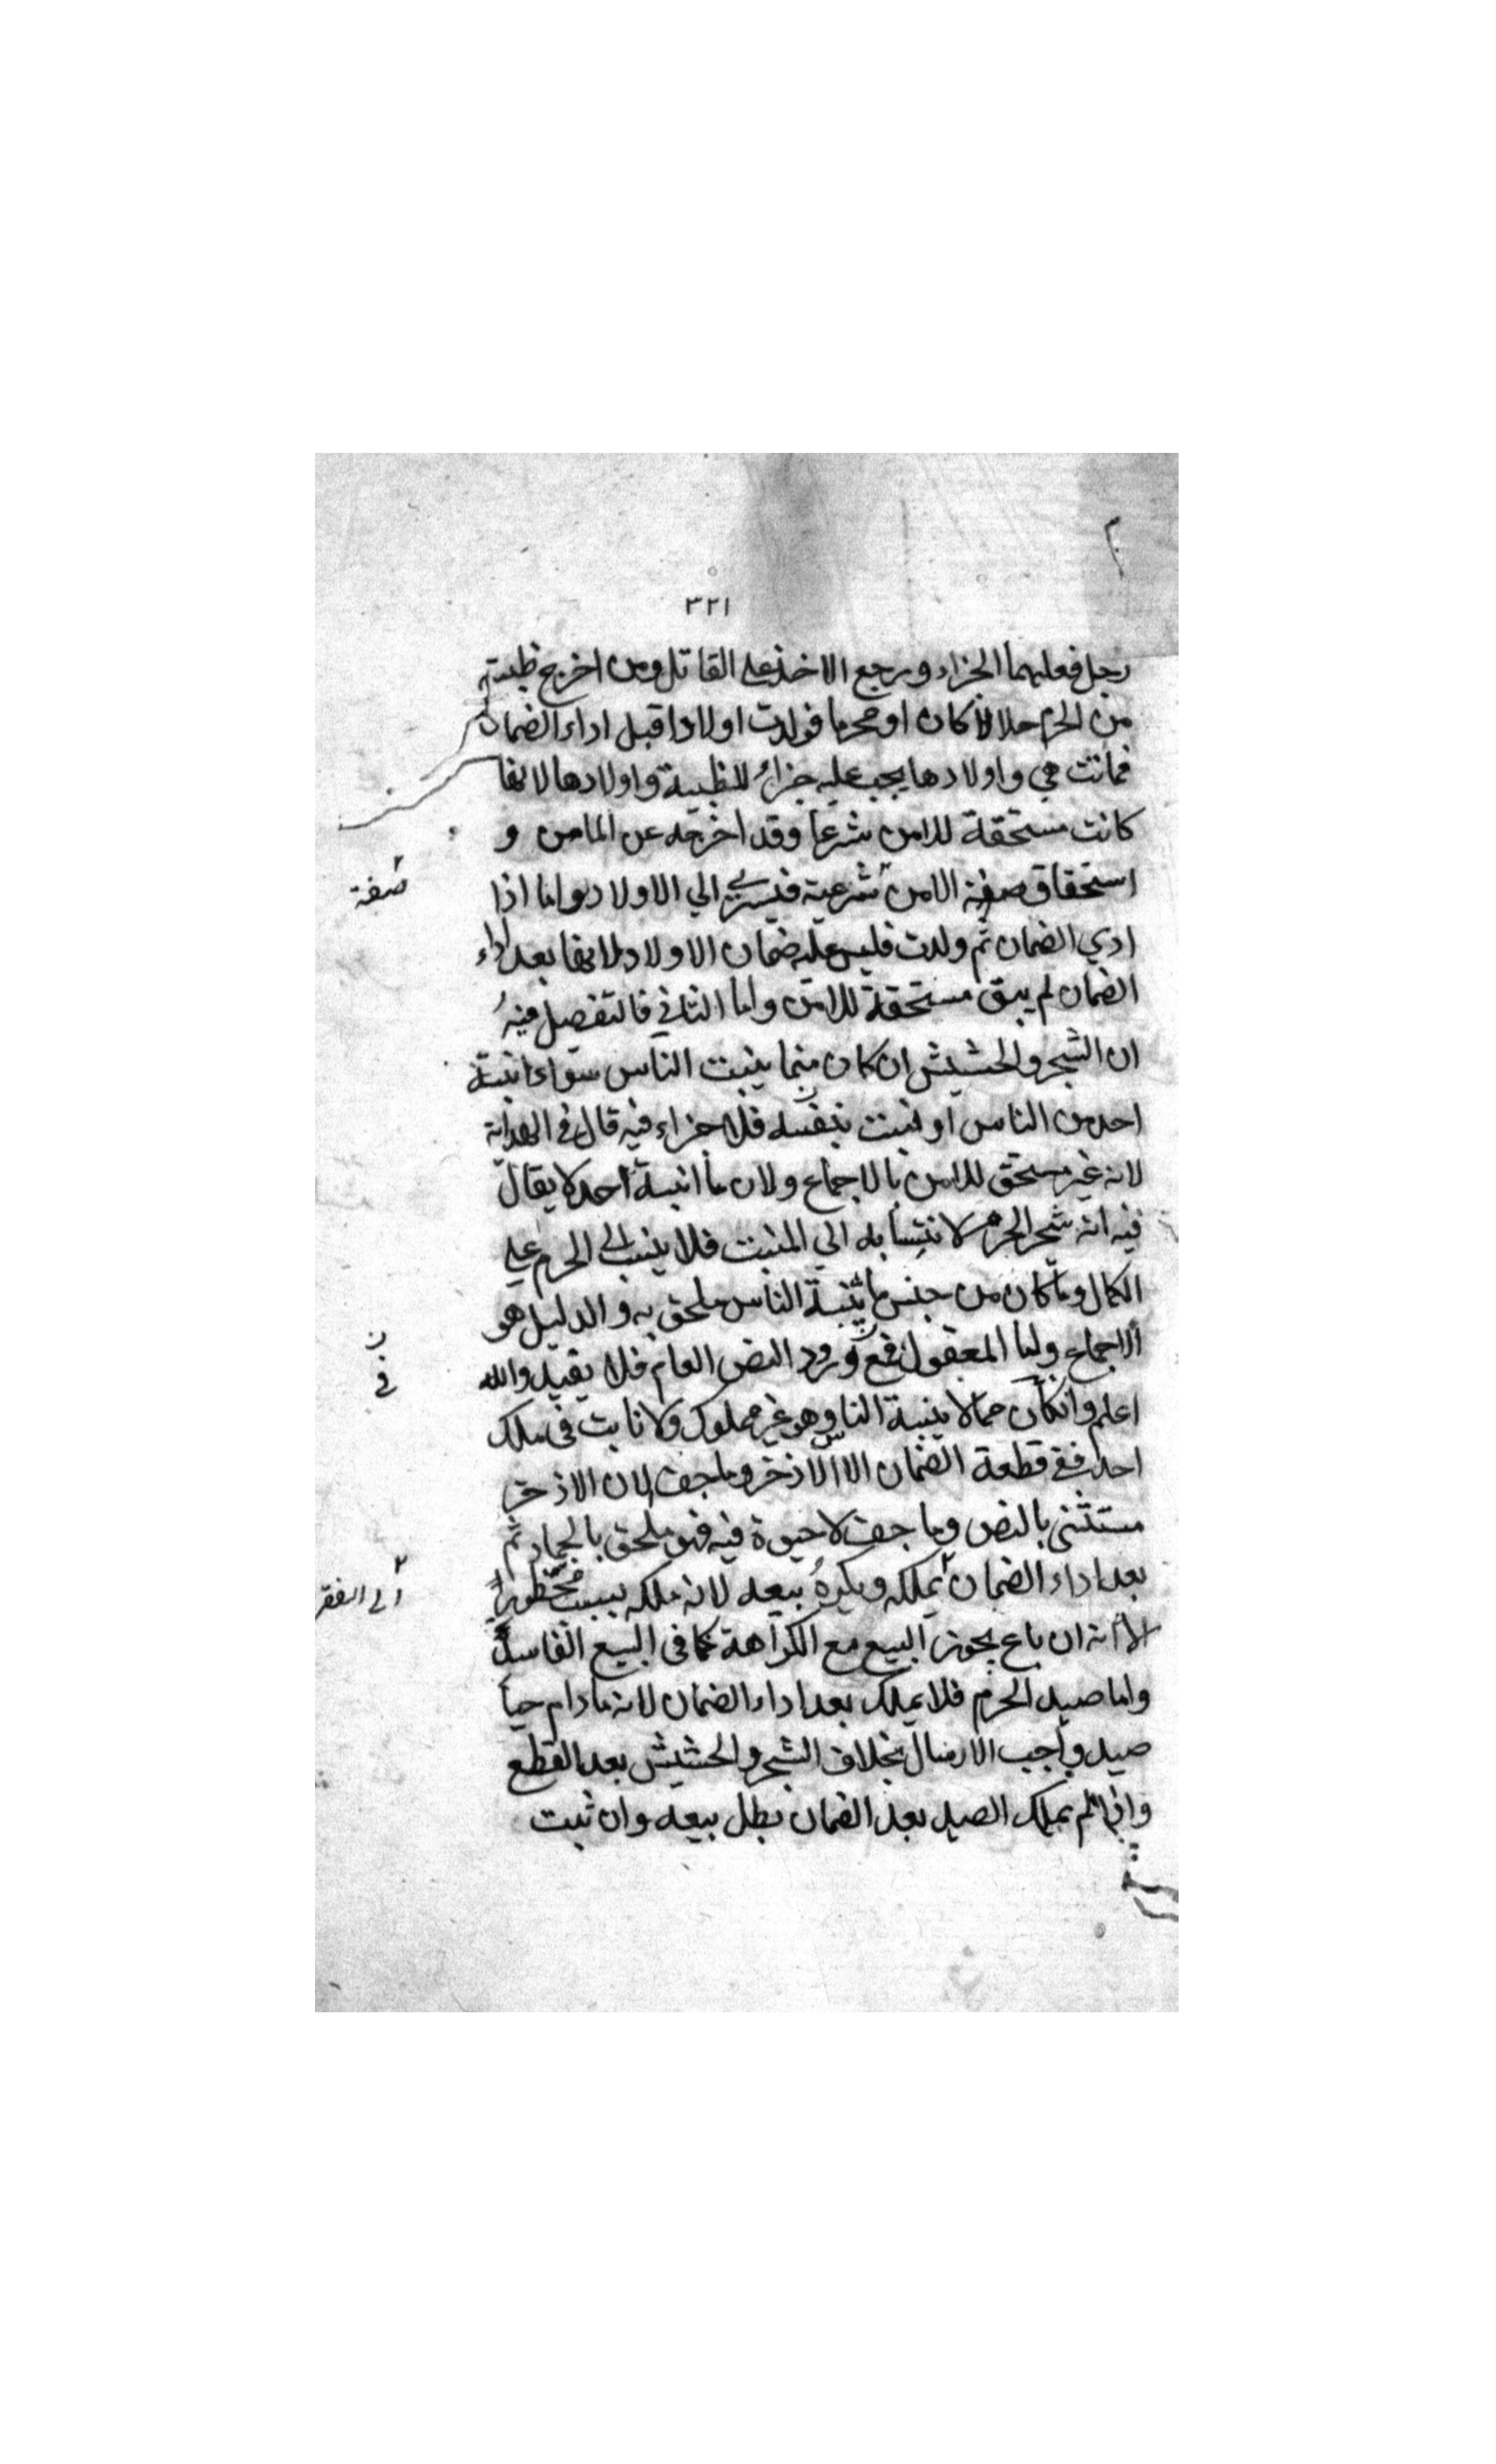 ٣٢١
رجل فعليهما الجزاء ويرجع الاخذ على القاتل ومن اخرج ظبية
من الحرم حلالا كان او محرما فولدت اولادا قبل اداء الضمان
فماتت هي واولادها يجب عليه جزاء للظبية واولادها لانها
كانت مستحقة للامن شرعا وقد اخرجه عن المامن و
استحقاق صفة الامن شرعية فيسري الي الاولاد واما اذا
صفة
ادي الضمان ثم ولدت فليس عليه ضمان الاولاد لانها بعد اداء
الضمان لم يبق مستحقة للامن واما الثاني فالتفصيل فيه
ان الشجر والحشيش ان كان مما ينبت الناس سواء انبته
احد من الناس او نبت بنفسه فلا جزاء فيه قال في الهداية
لانه غير مستحق للامن بالاجماع ولان ما انبته احد لا يقال
فيه انه شجر الحرم لانتسابه الي المنبت فلا ينسب الي الحرم علي
الكمال وما كان من جنس ما ينبته الناس ملحق به والدليل هو
الاجماع واما المعقول فمع ورود النص العام فلا يفيد والله
ن
في
اعلم وان كان مما لا ينبته الناس وهو غير مملوك ولا نابت في ملك
احد ففي قطعة الضمان الا الاذخر وما جف لان الاذخر
مستثنى بالنص وما جف لا حيوة فيه فهو ملحق بالجماد ثم
بعد اداء الضمان يملكه ويكره بيعه لانه ملكه بسبب محظور
الي الفقر
الا انه ان باع يجوز البيع مع الكراهة كما في البيع الفاسد
واما صيد الحرم فلا يملك بعد اداء الضمان لانه ما دام حيا
صيد واجب الارسال بخلاف الشجر والحشيش بعد القطع
واذا لم يملك الصيد بعد الضمان بطل بيعه وان ثبت